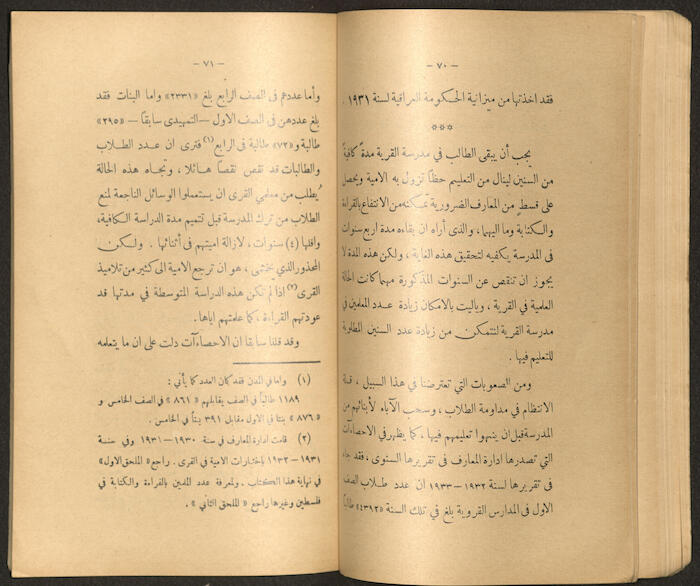 — ٧٠ —
فقد اخذتها من ميزانية الحكومة العراقية لسنة ١٩٣١ .
***
يجب أن يبقى الطالب في مدرسة القرية مدة كافية
من السنين لينال من التعليم حظاً تزول به الامية ويحصل
على قسط من المعارف الضرورية تمكنه من الانتفاع بالقراءة
والكتابة وما اليهما ، والذى أراه ان بقاءه مدة اربع سنوات
فى المدرسة يكفيه لتحقيق هذه الغاية ، ولكن هذه المدة لا
يجوز ان تنقص عن السنوات المذكورة مهما كانت الحالة
العلمية في القرية ، وياليت بالامكان زيادة عدد المعلمين في
مدرسة القرية لنتمكن من زيادة عدد السنين المطلوبة
للتعليم فيها .
ومن الصعوبات التي تعترضنا في هذا السبيل ، قلة
الانتظام في مداومة الطلاب ، وسحب الآباء لأبنائهم من
المدرسة قبل ان ينهوا تعليمهم فيها ، كما يظهر في الاحصاءآت
التي تصدرها ادارة المعارف فى تقريرها السنوى ، فقد جاء
فى تقريرها لسنة ١٩٣٢-١٩٣٣ ان عدد طلاب الصف
الاول فى المدارس القروية بلغ في تلك السنة «٤٣٩٢» طالباً
— ٧١ —
وأما عددهم فى الصف الرابع بلغ «٢٣٣١» واما البنات فقد
بلغ عددهن فى الصف الاول — التمهيدى سابقاً — «٢٩٥»
طالبة و «٧٢» طالبة فى الرابع (١) فترى ان عدد الطلاب
والطالبات قد نقص نقصاً هائلا ، وتجاه هذه الحالة
يُطلب من معلمي القرى ان يستعملوا الوسائل الناجعة لمنع
الطلاب من ترك المدرسة قبل تتميم مدة الدراسة الكافية،
واقلها (٤) سنوات ، لازالة اميتهم فى أثنائها . ولكن
المحذور الذي يخشى ، هو ان ترجع الامية الى كثير من تلاميذ
القرى (٢) اذا لم تكن هذه الدراسة المتوسطة في مدتها قد
عودتهم القراءة ، كما علمتهم اياها .
وقد قلنا سابقا ان الاحصاءآت دلت على ان ما يتعلمه
(١) واما في المدن فقد كان العدد كما يأتي :
١١٨٩ طالباً في الصف يقابلهم «٨٦١» في الصف الخامس و
«٨٧٦» بنتا في الاول مقابل ٣٩١ بنتاً في الخامس .
(٢) قامت ادارة المعارف في سنة ١٩٣٠-١٩٣١ وفي سنة
١٩٣١-١٩٣٢ باختبارات الامية في القرى . راجع «الملحق الاول»
في نهاية هذا الكتاب . ولمعرفة عدد الملمين بالقراءة والكتابة في
فلسطين وغيرها راجع « الملحق الثاني » .